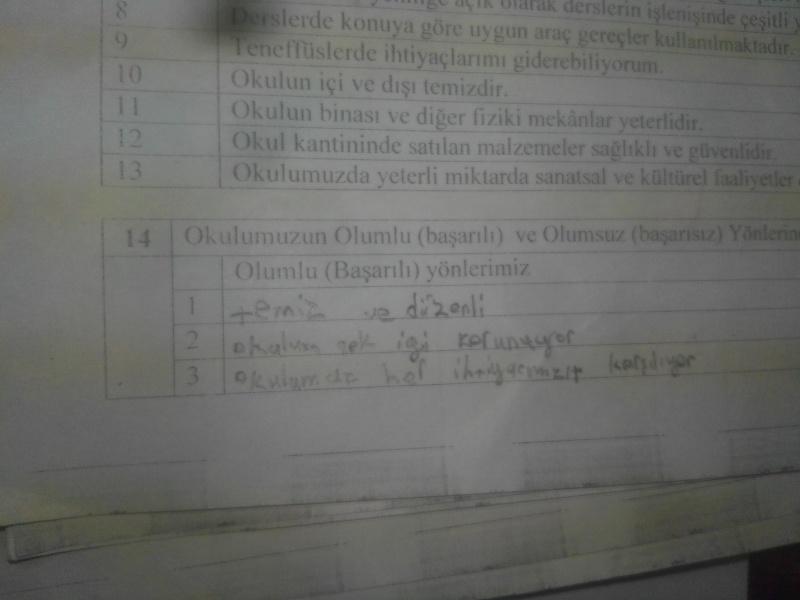 8
açık olarak derslerin işlenişinde çeşitli
Derslerde konuya göre uygun araç gereçler kullanılmaktadır.
9 Teneffüslerde ihtiyaçlarımı giderebiliyorum.
10 Okulun içi ve dışı temizdir.
11 Okulun binası ve diğer fiziki mekânlar yeterlidir.
12 Okul kantininde satılan malzemeler sağlıklı ve güvenlidir.
13 Okulumuzda yeterli miktarda sanatsal ve kültürel faaliyetler
14 Okulumuzun Olumlu (başarılı) ve Olumsuz (başarısız)
Olumlu (Başarılı) yönlerimiz
1 temiz ve düzenli
2 okulum çok iyi korunuyor
3 her karşılıyor